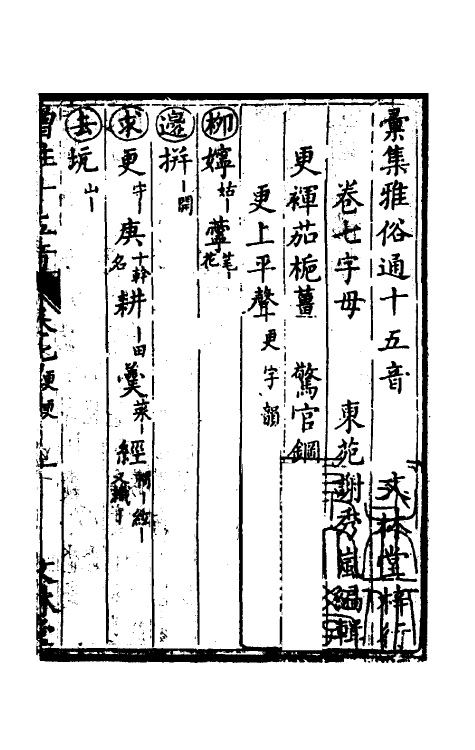 彙集雅俗通十五音 文林堂梓行
卷七字母 東苑謝秀嵐編輯
更褌茄梔薑 驚官鋼
更上平聲 更字韻
柳 嬣 姑｜ 薴 苼｜花
邊 拼 ｜開
求 更 守｜ 庚 十幹名 耕 ｜田 羹 菜｜ 經
去 坑 山｜
增註十五音 卷七
文林堂